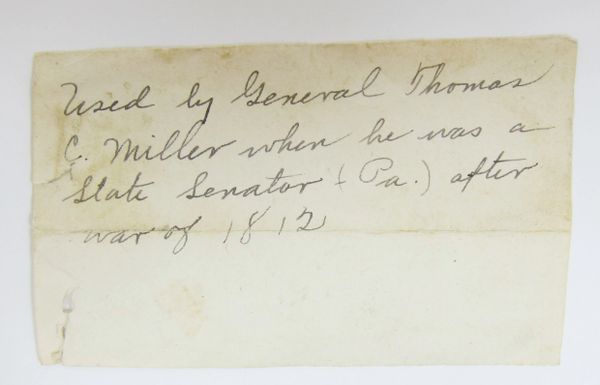 Used by General Thomas
C. Miller when he was a
State Senator (Pa.) after
war of 1812